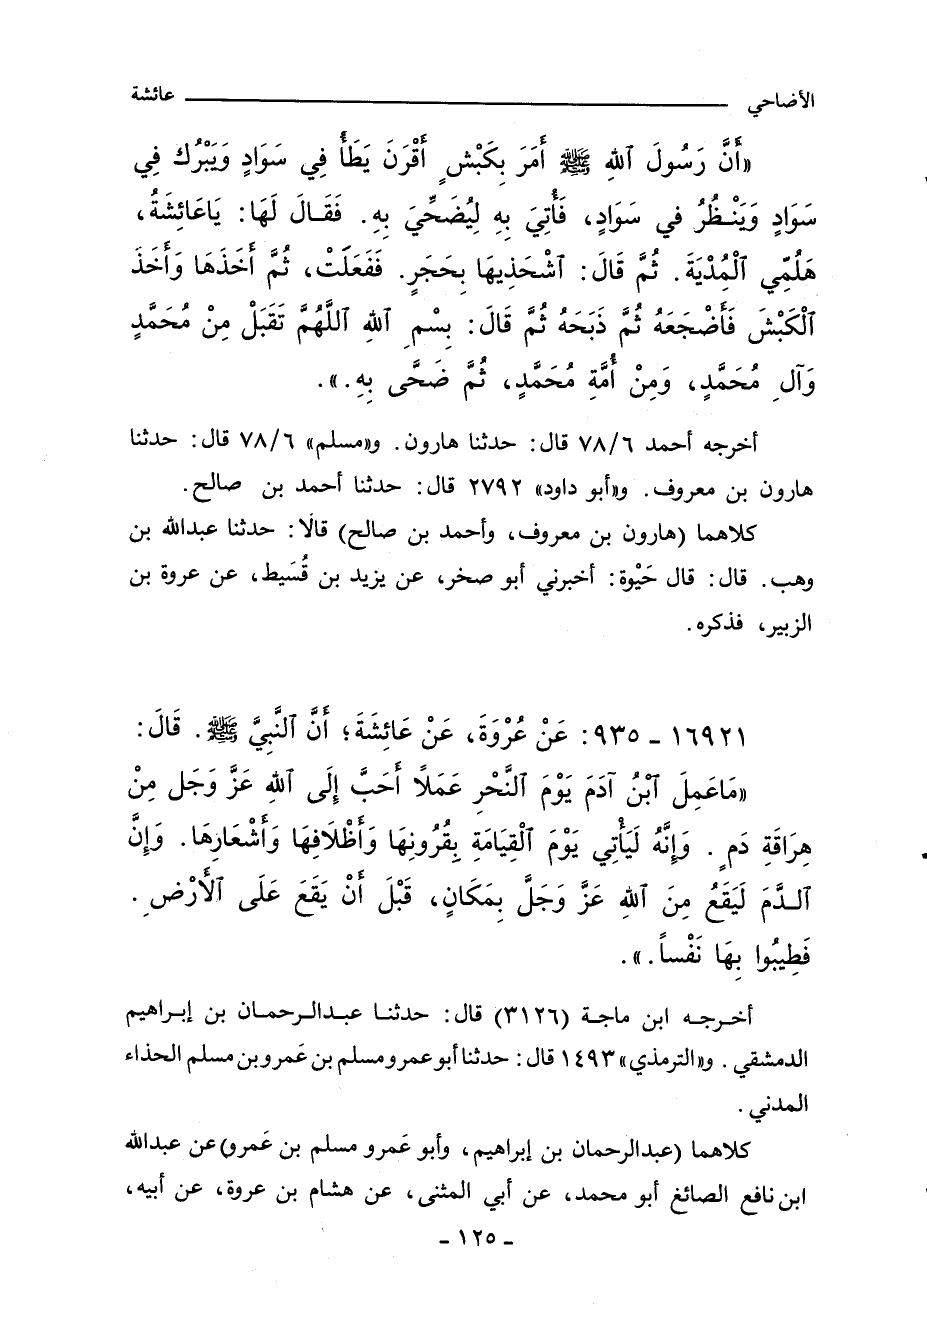 الأضاحي ــــــــــــــــــــ عائشة
«أَنَّ رَسُولَ ٱللهِ ﷺ أَمَرَ بِكَبْشٍ أَقْرَنَ يَطَأُ فِي سَوَادٍ وَيَبْرُك فِي
سَوَادٍ وَيَنْظُرُ في سَوَادٍ، فَأُتِيَ بِهِ لِيُضَحِّيَ بِهِ. فَقَالَ لَهَا: يَاعَائِشَةُ،
هَلُمِّي ٱلْمُدْيَةَ. ثُمَّ قَالَ: ٱشْحَذِيهَا بِحَجَرٍ. فَفَعَلَتْ، ثُمَّ أَخَذَهَا وَأَخَذَ
ٱلْكَبْشَ فَأَضْجَعَهُ ثُمَّ ذَبَحَهُ ثُمَّ قَالَ: بِسْمِ ٱللهِ ٱللَّهُمَّ تَقَبَلْ مِنْ مُحَمَّدٍ
وَآلِ مُحَمَّدٍ، وَمِنْ أُمَّةِ مُحَمَّدٍ، ثُمَّ ضَحَّى بِهِ.».
أخرجه أحمد ٧٨/٦ قال: حدثنا هارون. و«مسلم» ٧٨/٦ قال: حدثنا
هارون بن معروف. و«أبو داود» ٢٧٩٢ قال: حدثنا أحمد بن صالح.
كلاهما (هارون بن معروف، وأحمد بن صالح) قالَا: حدثنا عبدالله بن
وهب. قال: قال حَيْوة: أخبرني أبو صخر، عن يزيد بن قُسَيط، عن عروة بن
الزبير، فذكره.
١٦٩٢١ ـ ٩٣٥: عَنْ عُرْوَةَ، عَنْ عَائِشَةَ؛ أَنَّ ٱلنَّبِيَّ ﷺ. قَالَ:
«مَاعَمِلَ ٱبْنُ آدَمَ يَوْمَ ٱلنَّحْرِ عَمَلًا أَحَبَّ إِلَى ٱللهِ عَزَّ وَجَل مِنْ
هِرَاقَةِ دَمٍ. وَإِنَّهُ لَيَأْتِي يَوْمَ ٱلْقِيَامَةِ بِقُرُونِهَا وَأَظْلَافِهَا وَأَشْعَارِهَا. وَإِنَّ
ٱلدَّمَ لَيَقَعُ مِنَ ٱللهِ عَزَّ وَجَلَّ بِمَكَانٍ، قَبْلَ أَنْ يَقَعَ عَلَى ٱلْأَرْضِ.
فَطِيبُوا بِهَا نَفْساً.».
أخرجه ابن ماجة (٣١٢٦) قال: حدثنا عبدالرحمان بن إبراهيم
الدمشقي. و«الترمذي» ١٤٩٣ قال: حدثنا أبو عمرو مسلم بن عَمرو بن مسلم الحذاء
المدني.
كلاهما (عبدالرحمان بن إبراهيم، وأبو عَمرو مسلم بن عَمرو) عن عبدالله
ابن نافع الصائغ أبو محمد، عن أبي المثنى، عن هشام بن عروة، عن أبيه،
ـ ١٢٥ ـ